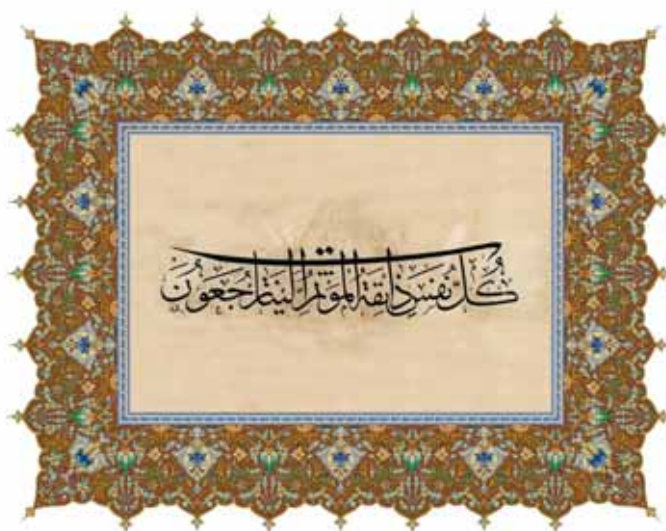 كُلُّ نَفْسٍ ذَائِقَةُ المَوْتِ ثُمَّ إِلَيْنَا تُرْجَعُونَ